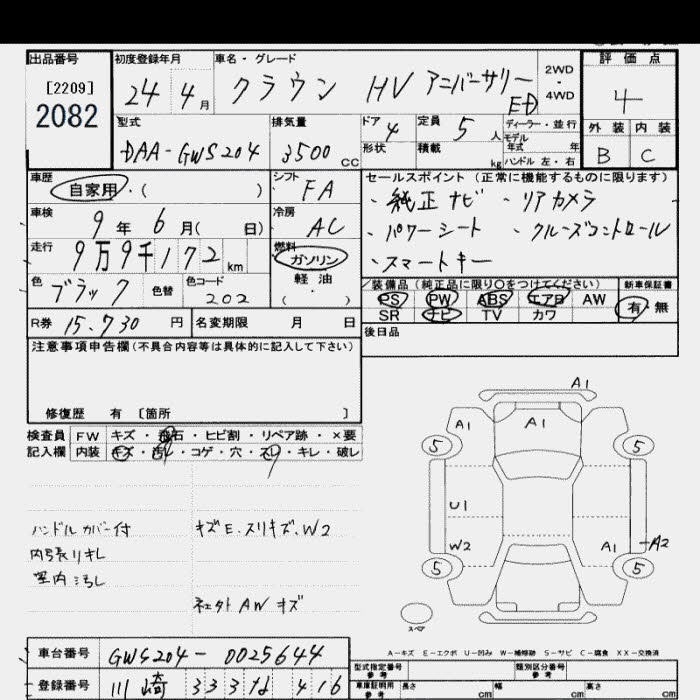 出品番号 初度登録年月 車名・グレード 評価点
[2209]
2082
24 4月 クラウン HV アニバーサリーED 2WD・4WD 4
型式 排気量 ドア 4 定員 5人 ディーラー・並行 外装 内装
DAA-GWS204 3500cc 形状 積載 kg モデル年式 年 ハンドル 左・右 B C
車歴 自家用・( ) シフト FA セールスポイント(正常に機能するものに限ります)
・純正ナビ ・リアカメラ
車検 9年 6月( 日) 冷房 AC ・パワーシート ・クルーズコントロール
走行 9万9千172km 燃料 ガソリン・軽油・( ) ・スマートキー
色 ブラック 色替 色コード 202
装備品(純正品に限り○をつけてください) 新車保証書
PS PW ABS エアB AW 有・無
SR ナビ TV カワ
R券 15,730円 名変期限 月 日 後日品
注意事項申告欄(不具合内容等は具体的に記入して下さい)
修復歴 有 〔箇所 〕
検査員 FW キズ・飛石・ヒビ割・リペア跡・×要
記入欄 内装 キズ・汚れ・コゲ・穴・スレ・キレ・破レ
ハンドルカバー付 キズE.スリキズ.W2
内張リキレ
室内ヨゴレ
AWキズ
A1
A1 A1
5 5
U1
W2 A1 A2
5 5
スペア
A-キズ E-エクボ U-凹み W-補修跡 S-サビ C-腐食 XX-交換済
車台番号 GWS204-0025644
型式指定番号 参考 類別区分番号 参考
登録番号 川崎 333 な 416
車庫証明用 参考 長さ cm 幅 cm 高さ cm